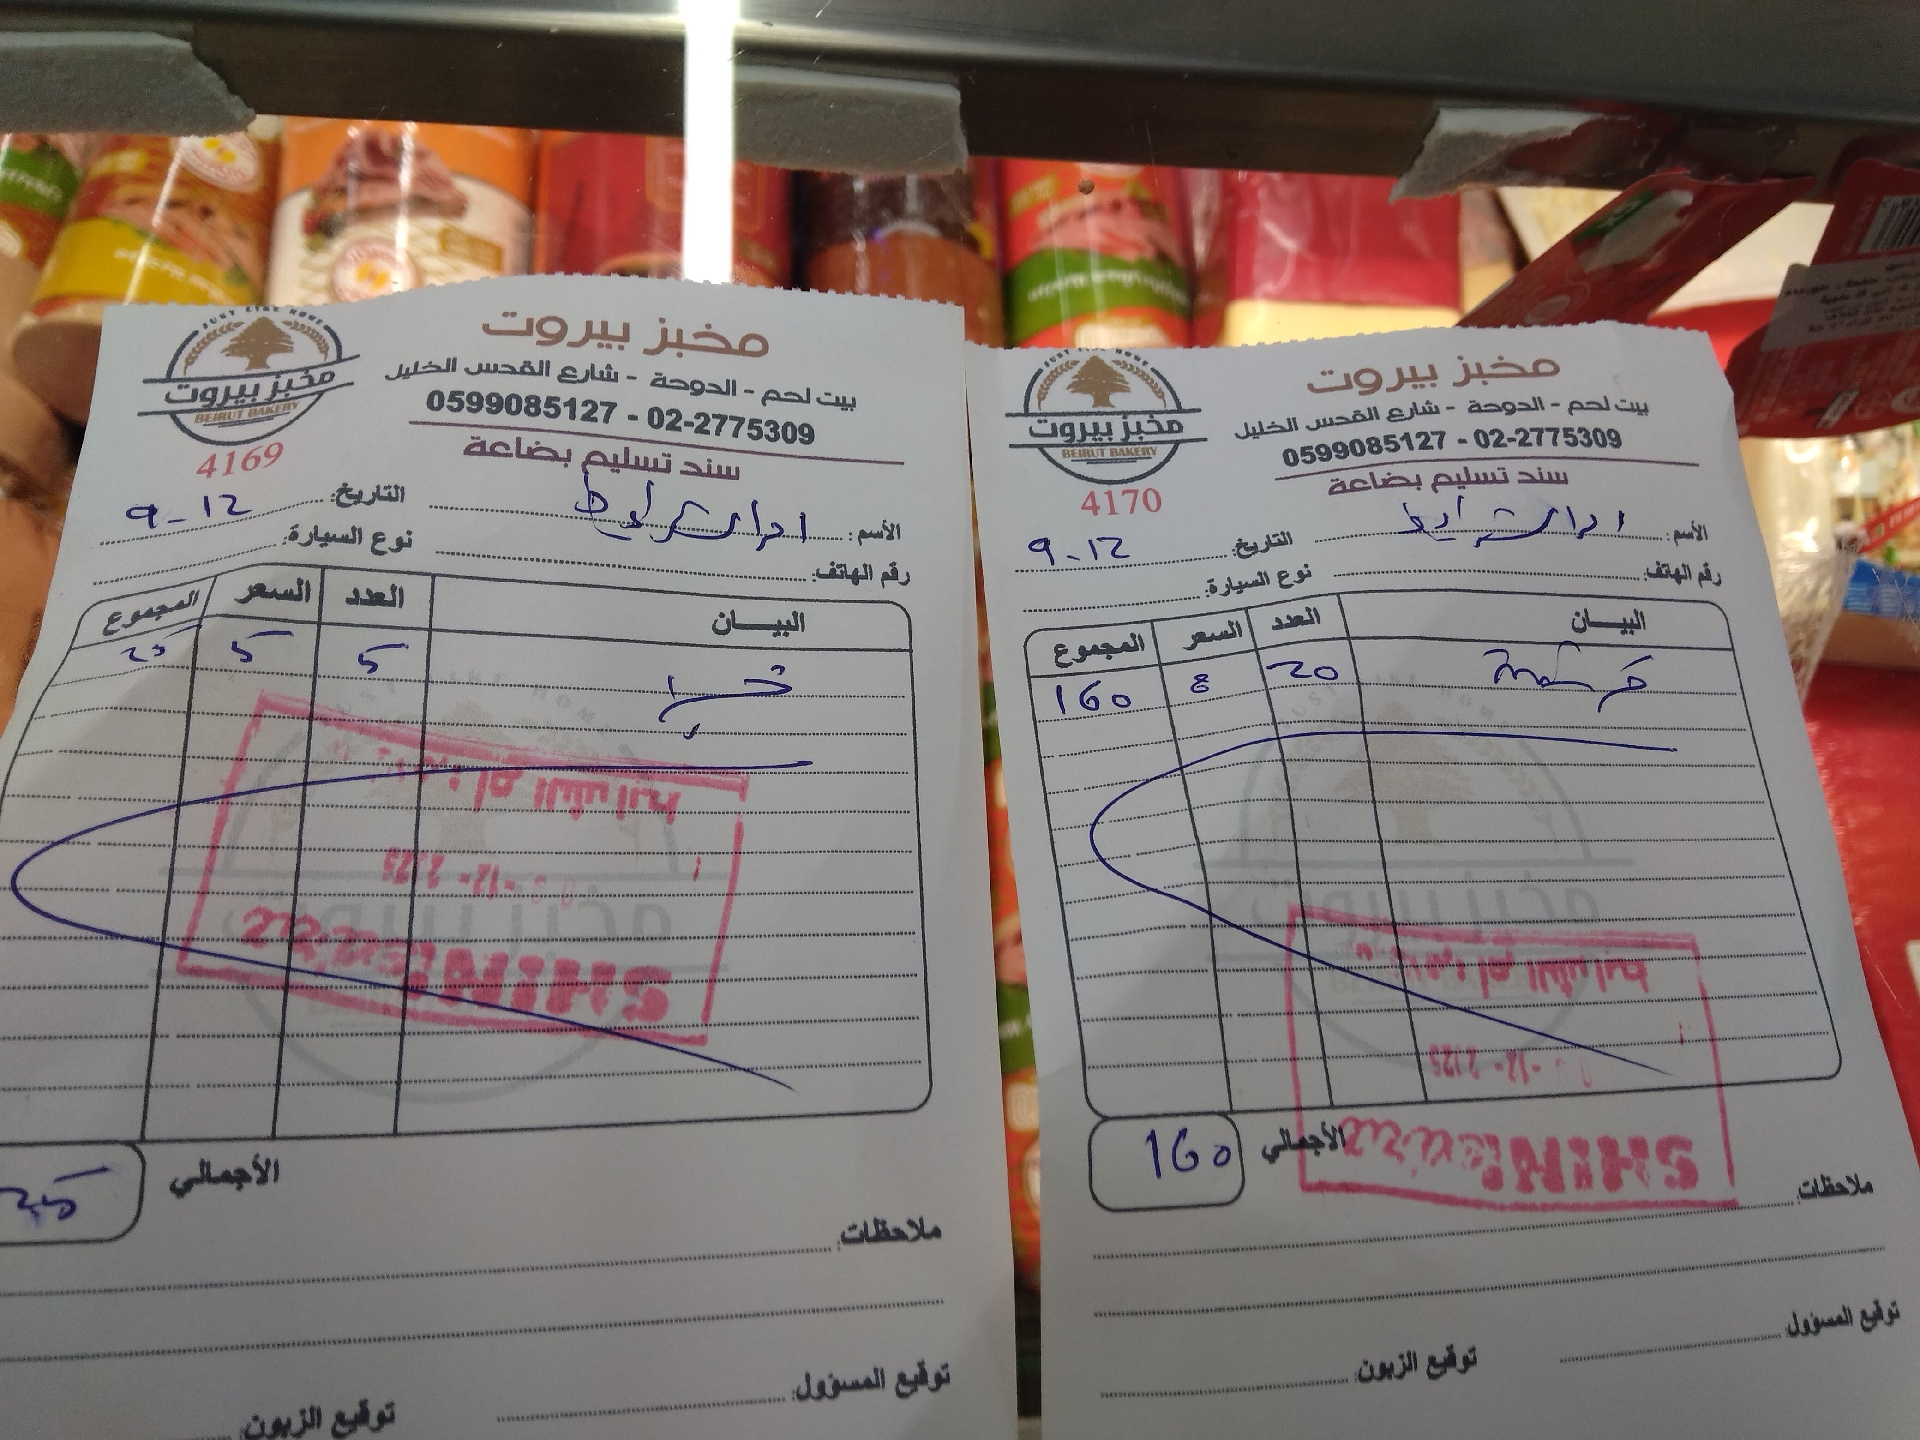 JUST LIKE HOME
مخبز بيروت
BEIRUT BAKERY
مخبز بيروت
بيت لحم - الدوحة - شارع القدس الخليل
0599085127 - 02-2775309
سند تسليم بضاعة
4169
الأسم:
التاريخ: 9-12
رقم الهاتف:
نوع السيارة:
البيـــــان العدد السعر المجموع
5 5 25
ام الشرايط
SHINI
الأجمالي 25
ملاحظات:
توقيع المسؤول:
توقيع الزبون:
JUST LIKE HOME
مخبز بيروت
BEIRUT BAKERY
مخبز بيروت
بيت لحم - الدوحة - شارع القدس الخليل
0599085127 - 02-2775309
سند تسليم بضاعة
4170
الأسم:
التاريخ: 9-12
رقم الهاتف:
نوع السيارة:
البيـــــان العدد السعر المجموع
20 8 160
ام الشرايط
SHINI
الأجمالي 160
ملاحظات:
توقيع المسؤول:
توقيع الزبون: